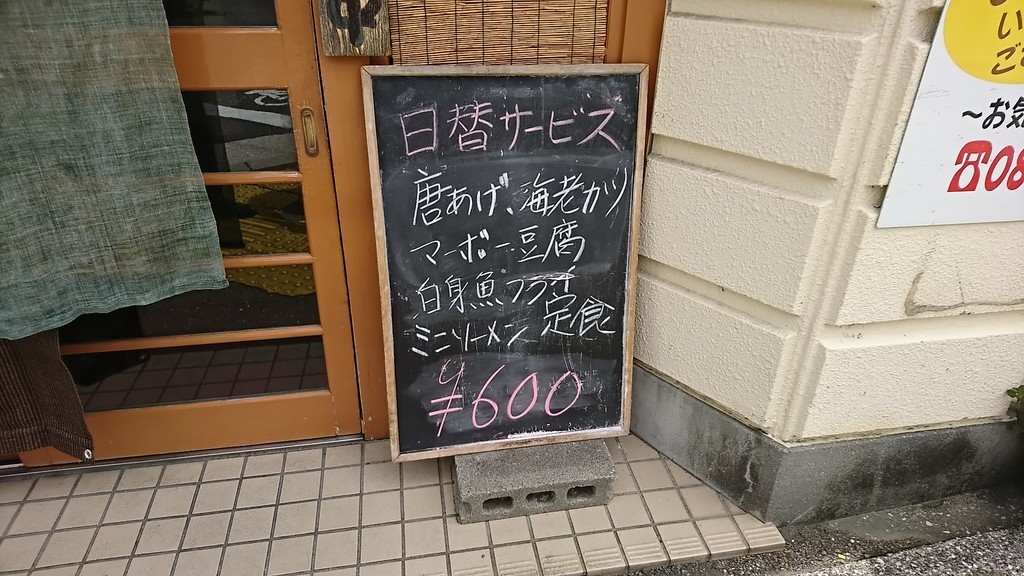 日替サービス
唐あげ、海老カツ
マーボー豆腐
白身魚フライ
ミニソーメン 定食
¥600
い
ご
～お気
☎08